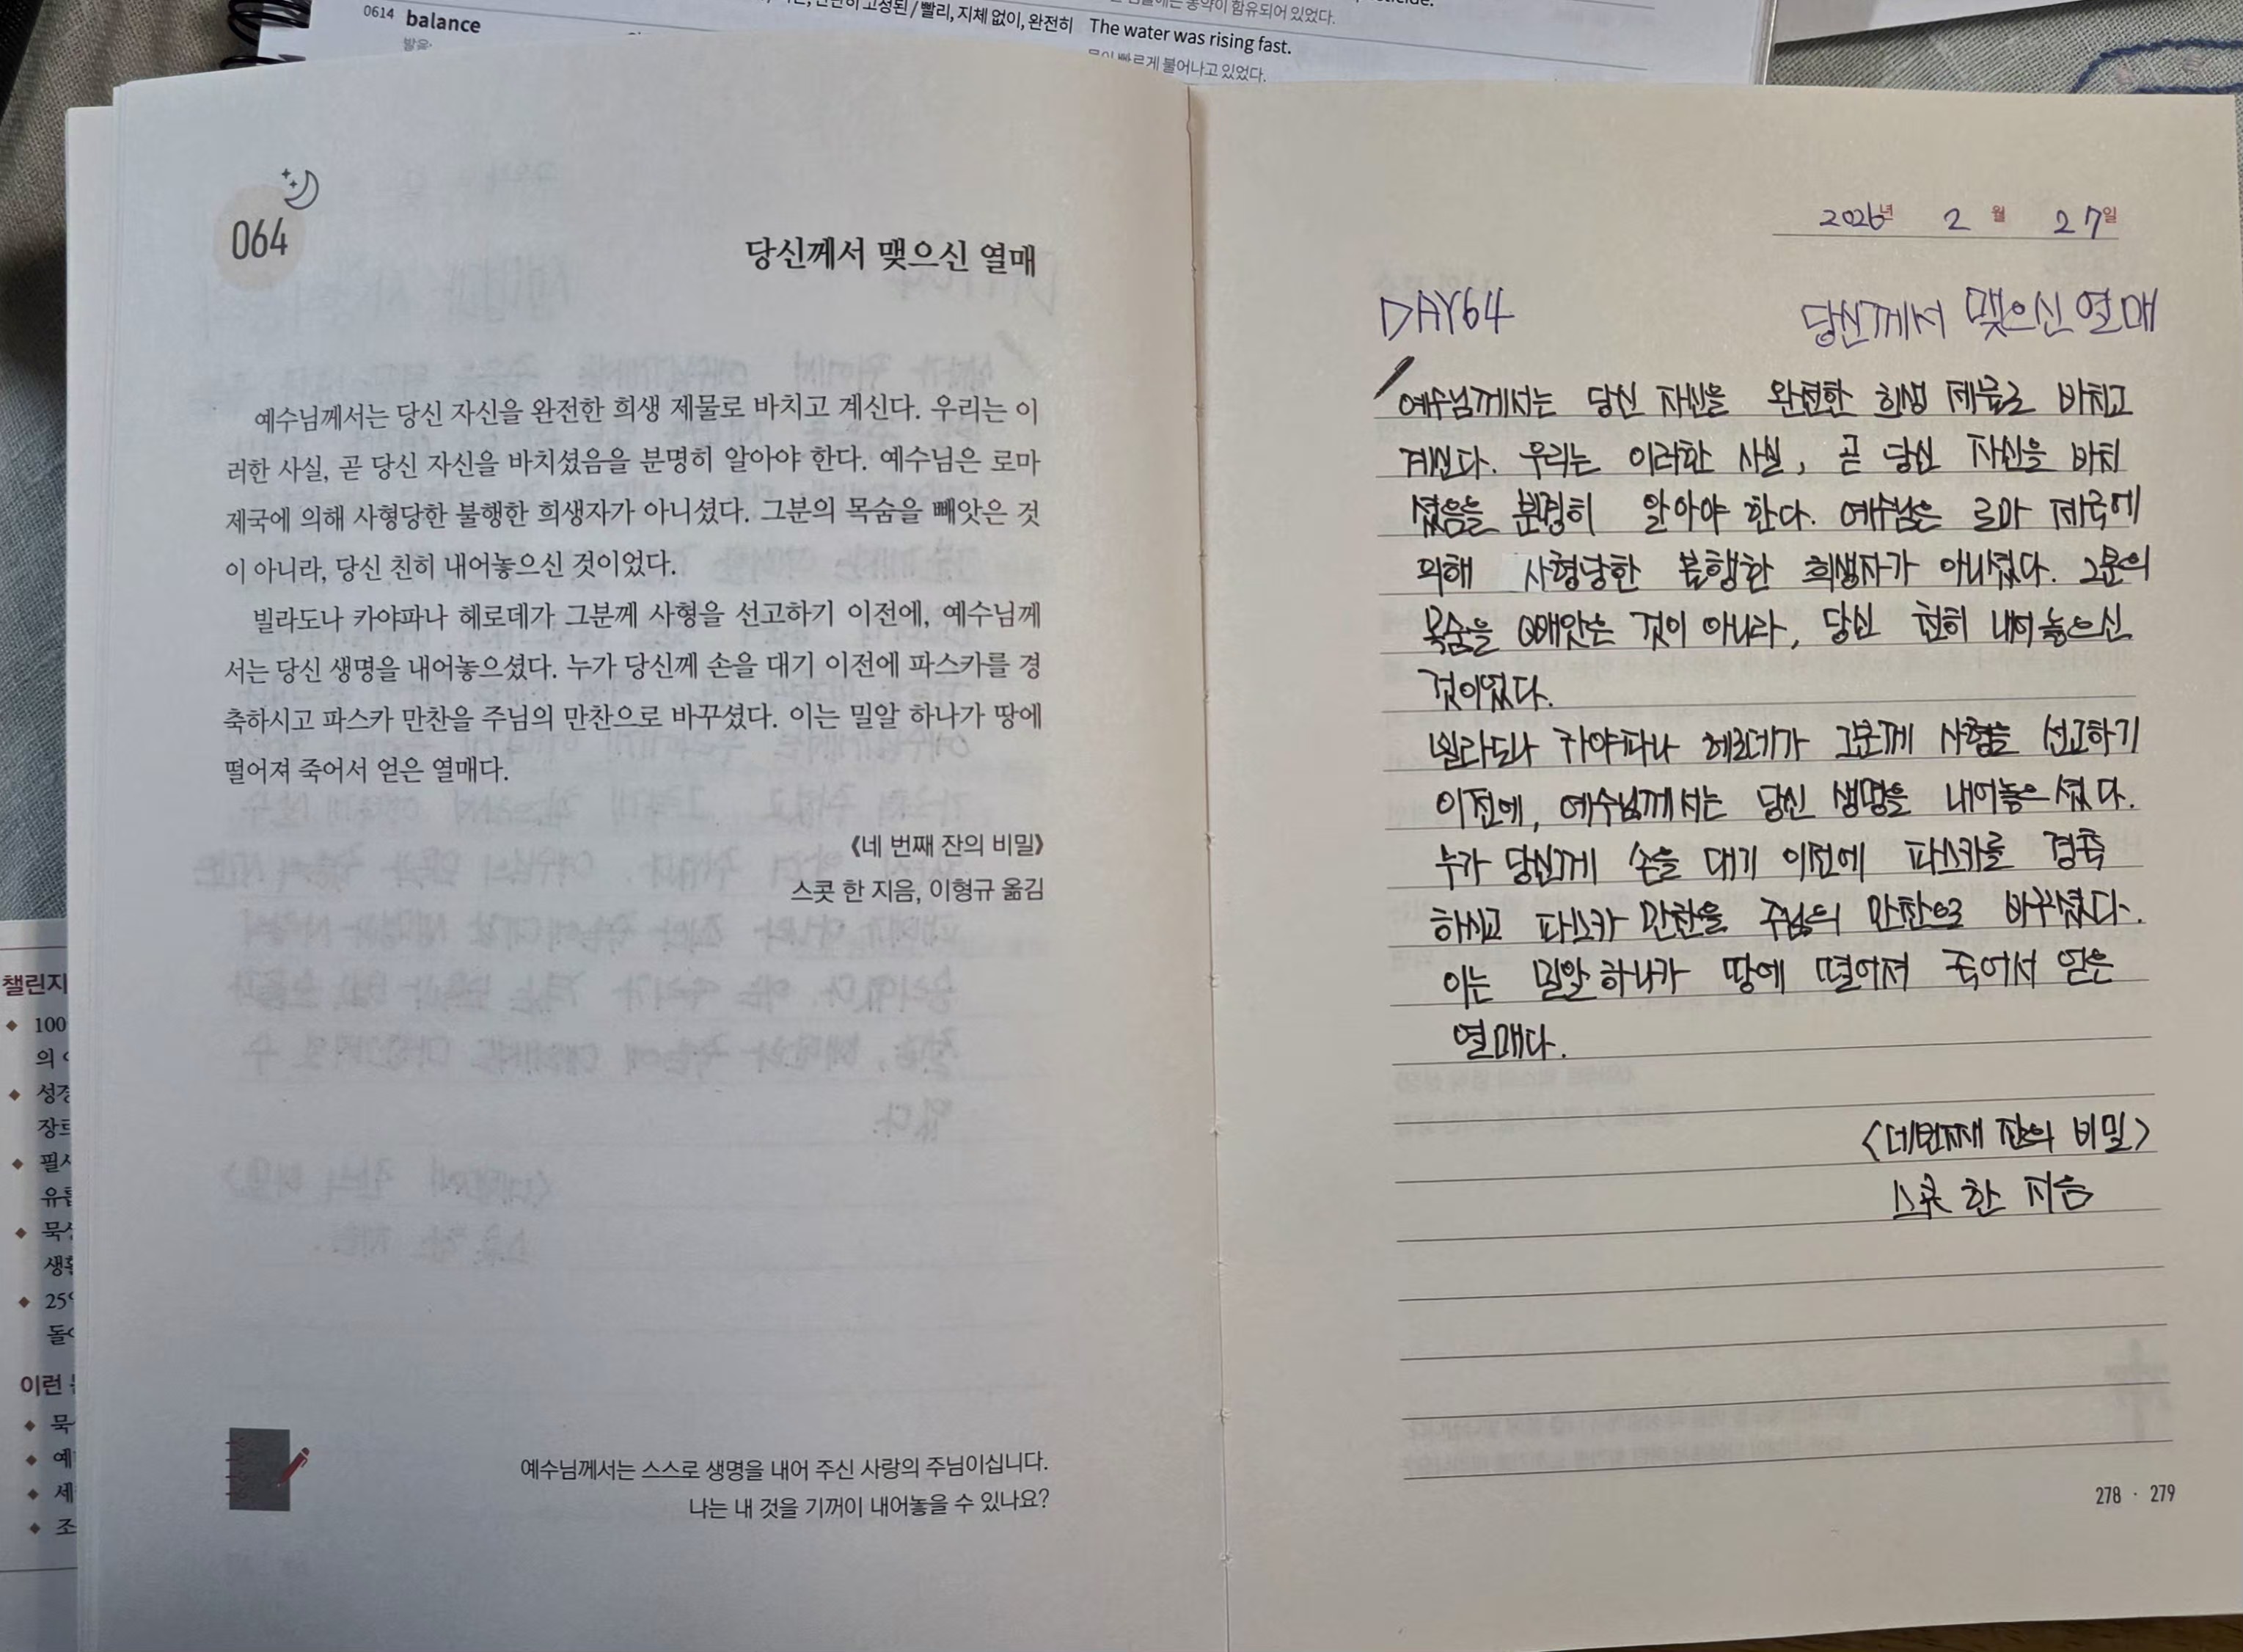 0614 balance
빨리, 지체 없이, 완전히 The water was rising fast.
빠르게 불어나고 있었다.
함유되어 있었다.
064
당신께서 맺으신 열매
예수님께서는 당신 자신을 완전한 희생 제물로 바치고 계신다. 우리는 이
러한 사실, 곧 당신 자신을 바치셨음을 분명히 알아야 한다. 예수님은 로마
제국에 의해 사형당한 불행한 희생자가 아니셨다. 그분의 목숨을 빼앗은 것
이 아니라, 당신 친히 내어놓으신 것이었다.
빌라도나 카야파나 헤로데가 그분께 사형을 선고하기 이전에, 예수님께
서는 당신 생명을 내어놓으셨다. 누가 당신께 손을 대기 이전에 파스카를 경
축하시고 파스카 만찬을 주님의 만찬으로 바꾸셨다. 이는 밀알 하나가 땅에
떨어져 죽어서 얻은 열매다.
《네 번째 잔의 비밀》
스콧 한 지음, 이형규 옮김
예수님께서는 스스로 생명을 내어 주신 사랑의 주님이십니다.
나는 내 것을 기꺼이 내어놓을 수 있나요?
챌린지
100
의
성경
이런
2026년 2월 27일
DAY64 당신께서 맺으신 열매
예수님께서는 당신 자신을 완전한 희생 제물로 바치고
계신다. 우리는 이러한 사실, 곧 당신 자신을 바치
셨음을 분명히 알아야 한다. 예수님은 로마 제국에
의해 사형당한 불행한 희생자가 아니셨다. 그분의
목숨을 빼앗은 것이 아니라, 당신 친히 내어놓으신
것이었다.
빌라도나 카야파나 헤로데가 그분께 사형을 선고하기
이전에, 예수님께서는 당신 생명을 내어놓으셨다.
누가 당신께 손을 대기 이전에 파스카를 경축
하시고 파스카 만찬을 주님의 만찬으로 바꾸셨다.
이는 밀알 하나가 땅에 떨어져 죽어서 얻은
열매다.
<네번째 잔의 비밀>
스콧 한 지음
278 · 279